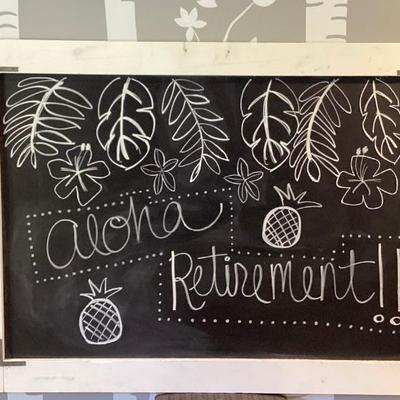 aloha
Retirement!!